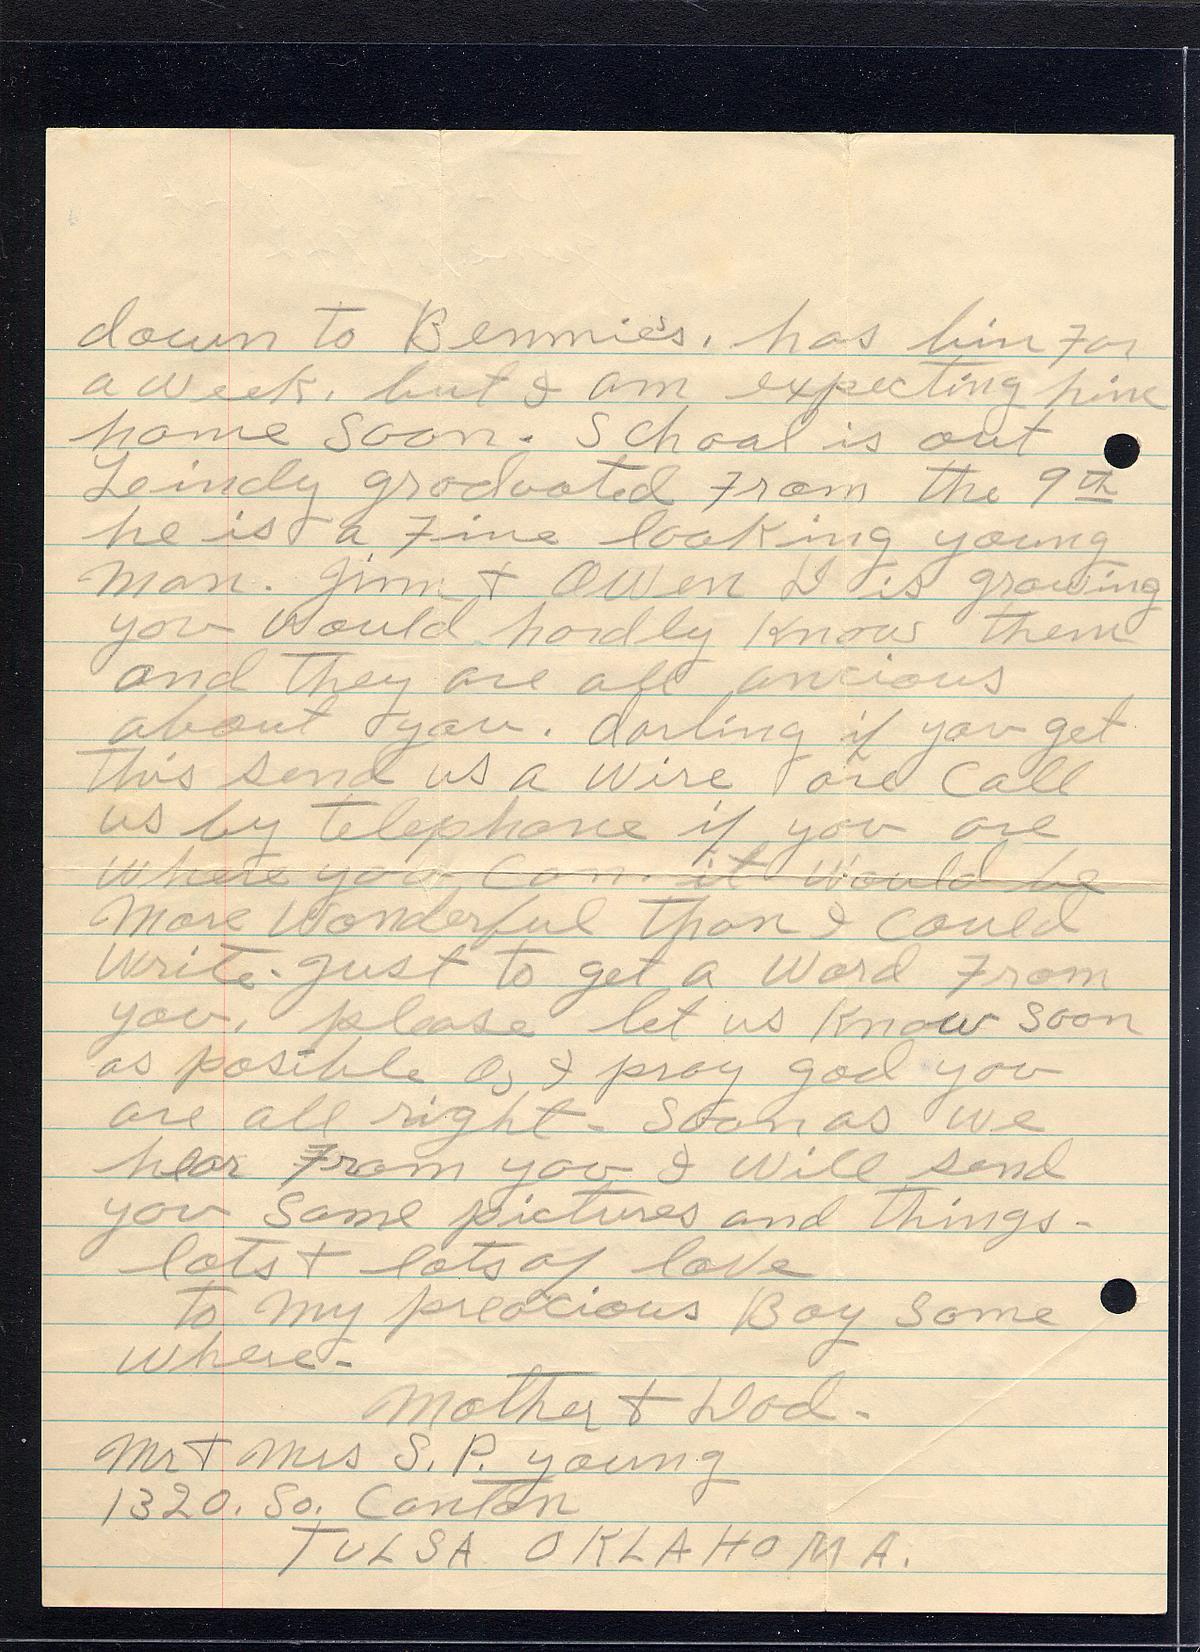 down to Bennie's. has bin for
a week. but I am expecting him
home soon. School is out
Leindy graduated from the 9th
he is a fine looking young
man. Jim + Owen D is growing
you would hardly know them
and they are all ancious
about you. darling if you get
this send us a wire ore call
us by telephone if you are
where you can. it would be
more wonderful than I could
write. just to get a word from
you. please let us know soon
as posible as I pray god you
are all right - Soon as we
hear from you I will send
you some pictures and things -
lots + lots of love
to my preacious Boy some
where -
Mother + Dad -
Mr + Mrs S. P. young
1320. So. Canton
TULSA OKLAHOMA.